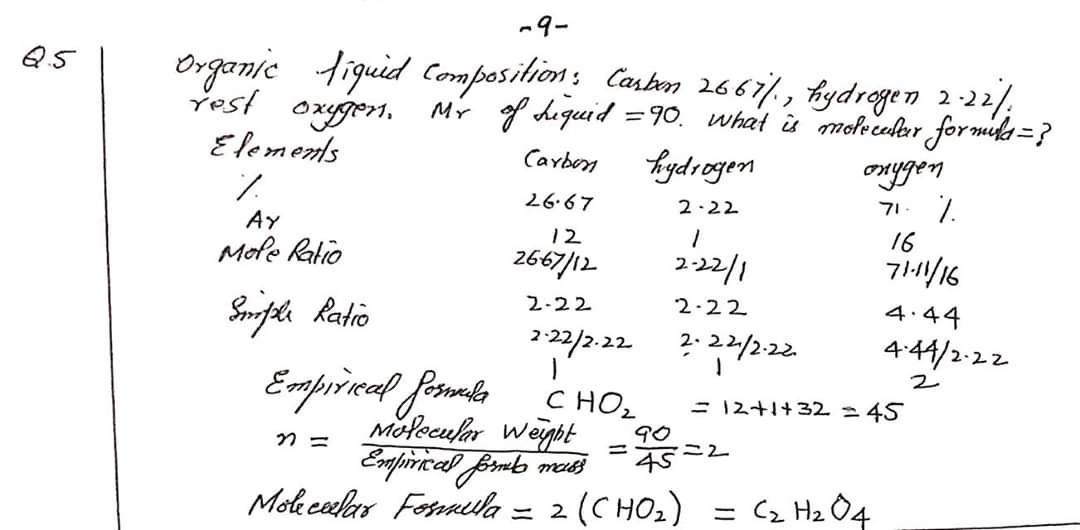 -9-
Q.5 Organic liquid Composition: Carbon 26.67%, hydrogen 2.22%.
rest oxygen. Mr of liquid = 90. What is molecular formula = ?
Elements Carbon hydrogen oxygen
% 26.67 2.22 71. %.
Ar 12 1 16
Mole Ratio 26.67/12 2.22/1 71.11/16
Simple Ratio 2.22 2.22 4.44
2.22/2.22 2.22/2.22 4.44/2.22
1 1 2
Empirical formula CHO₂ = 12+1+32 = 45
n = Molecular Weight / Empirical formula mass = 90/45 = 2
Molecular Formula = 2 (CHO₂) = C₂H₂O₄